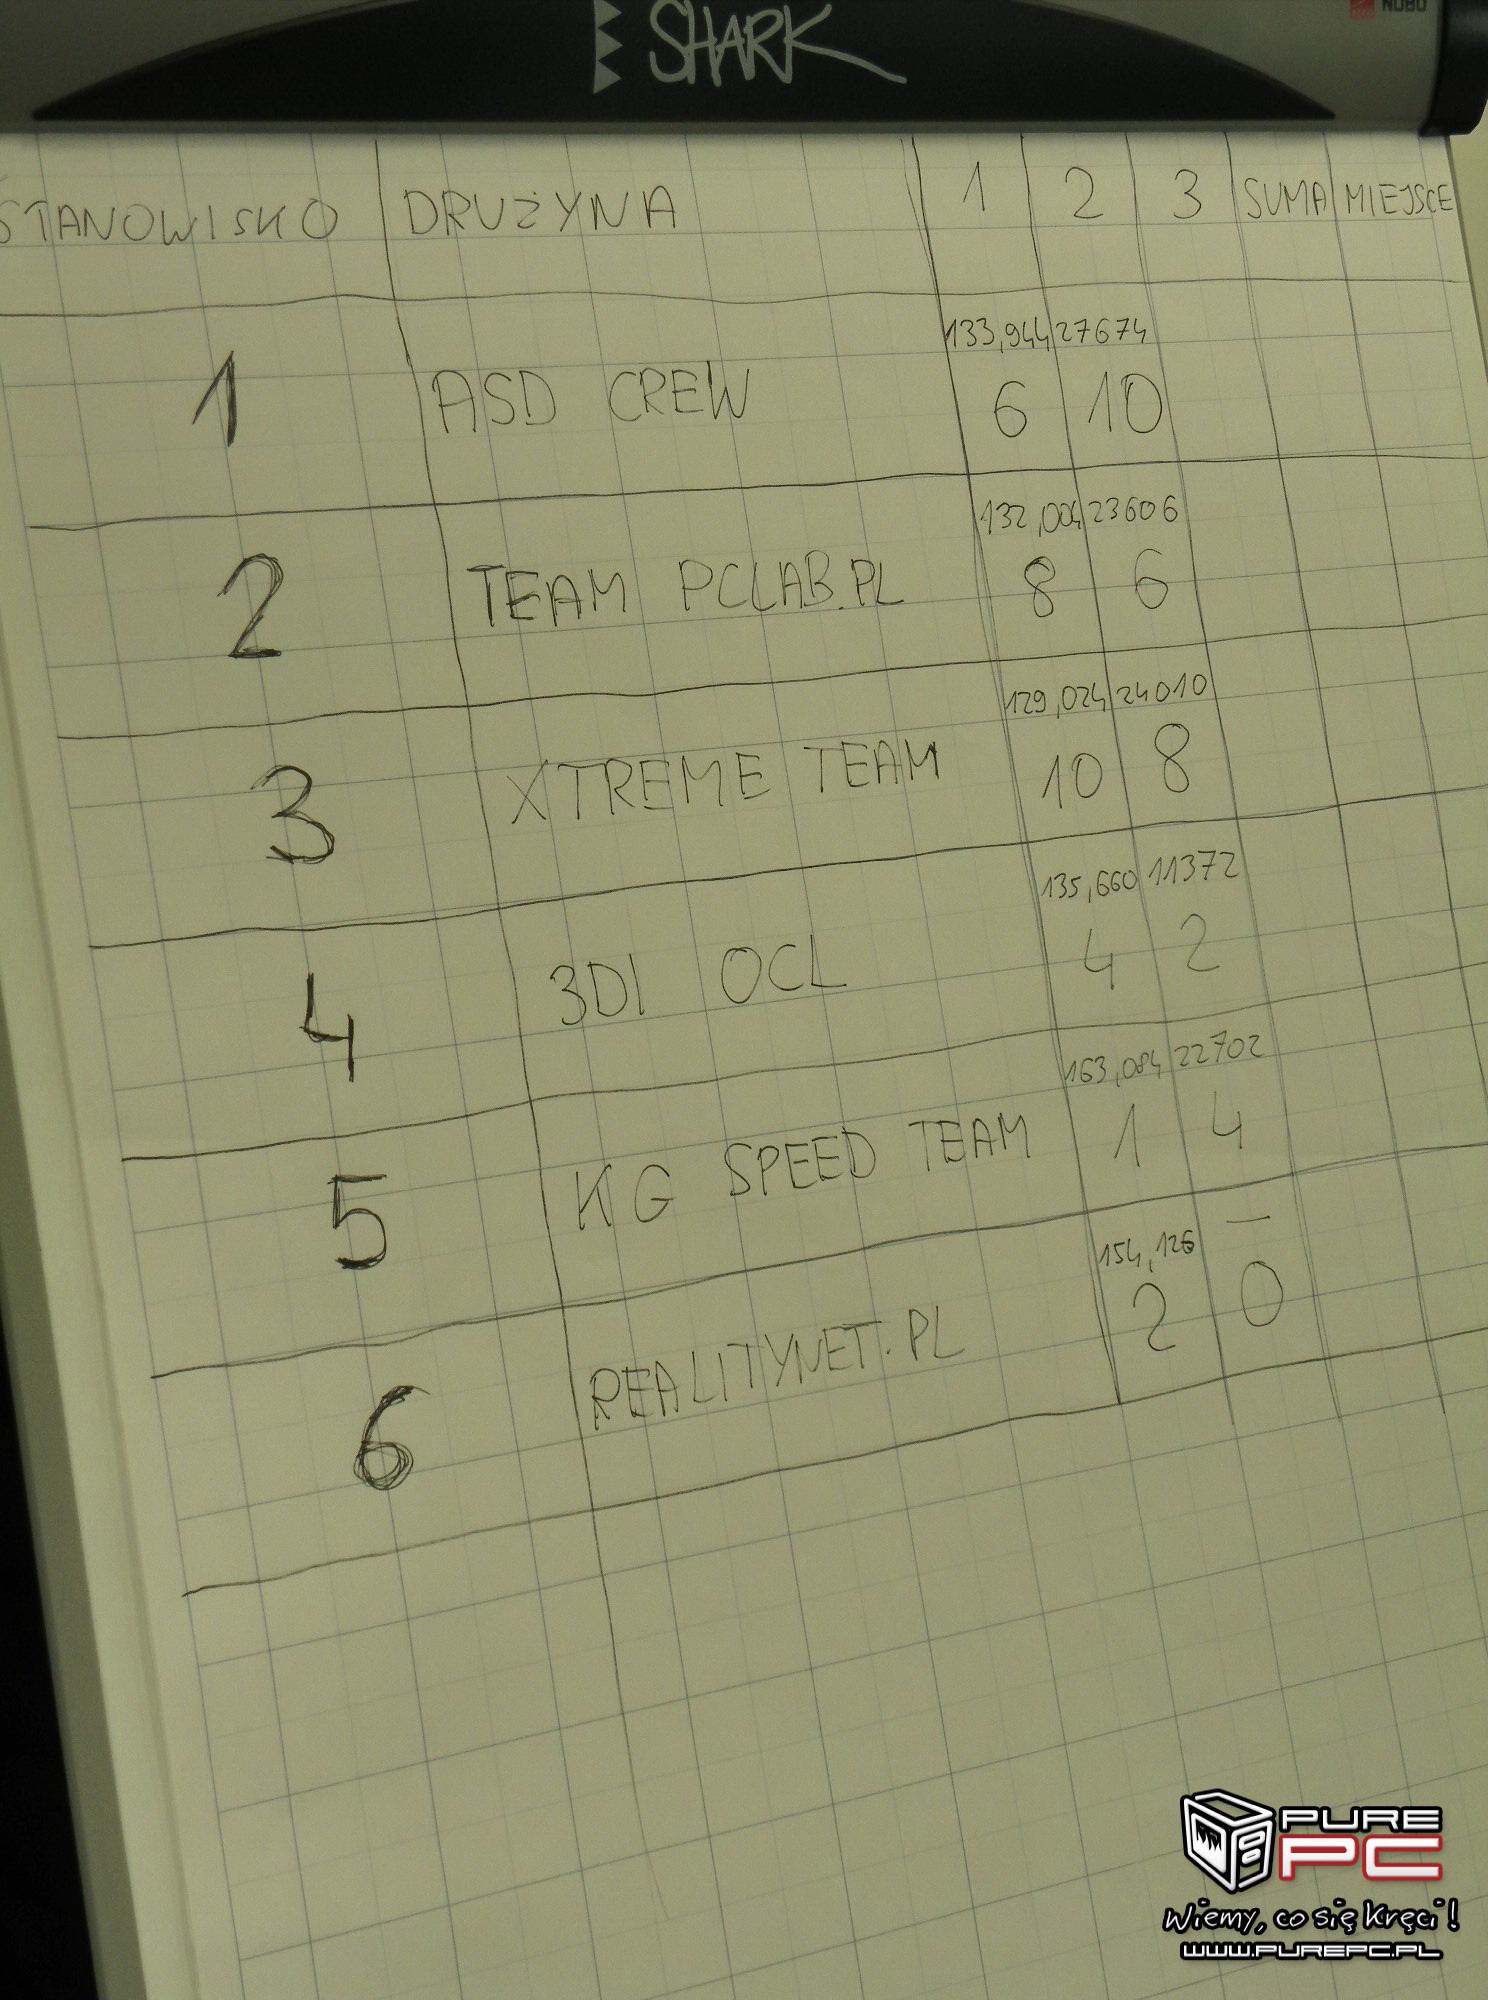 SHARK
NOBO
STANOWISKO DRUŻYNA 1 2 3 SUMA MIEJSCE
133,944 27674
1 ASD CREW 6 10
132,004 23606
2 TEAM PCLAB.PL 8 6
129,024 24010
3 XTREME TEAM 10 8
135,660 11372
4 3DI OCL 4 2
163,084 22702
5 KG SPEED TEAM 1 4
154,126 —
6 REALITYNET.PL 2 0
PURE
PC
Wiemy, co się kręci!
WWW.PUREPC.PL